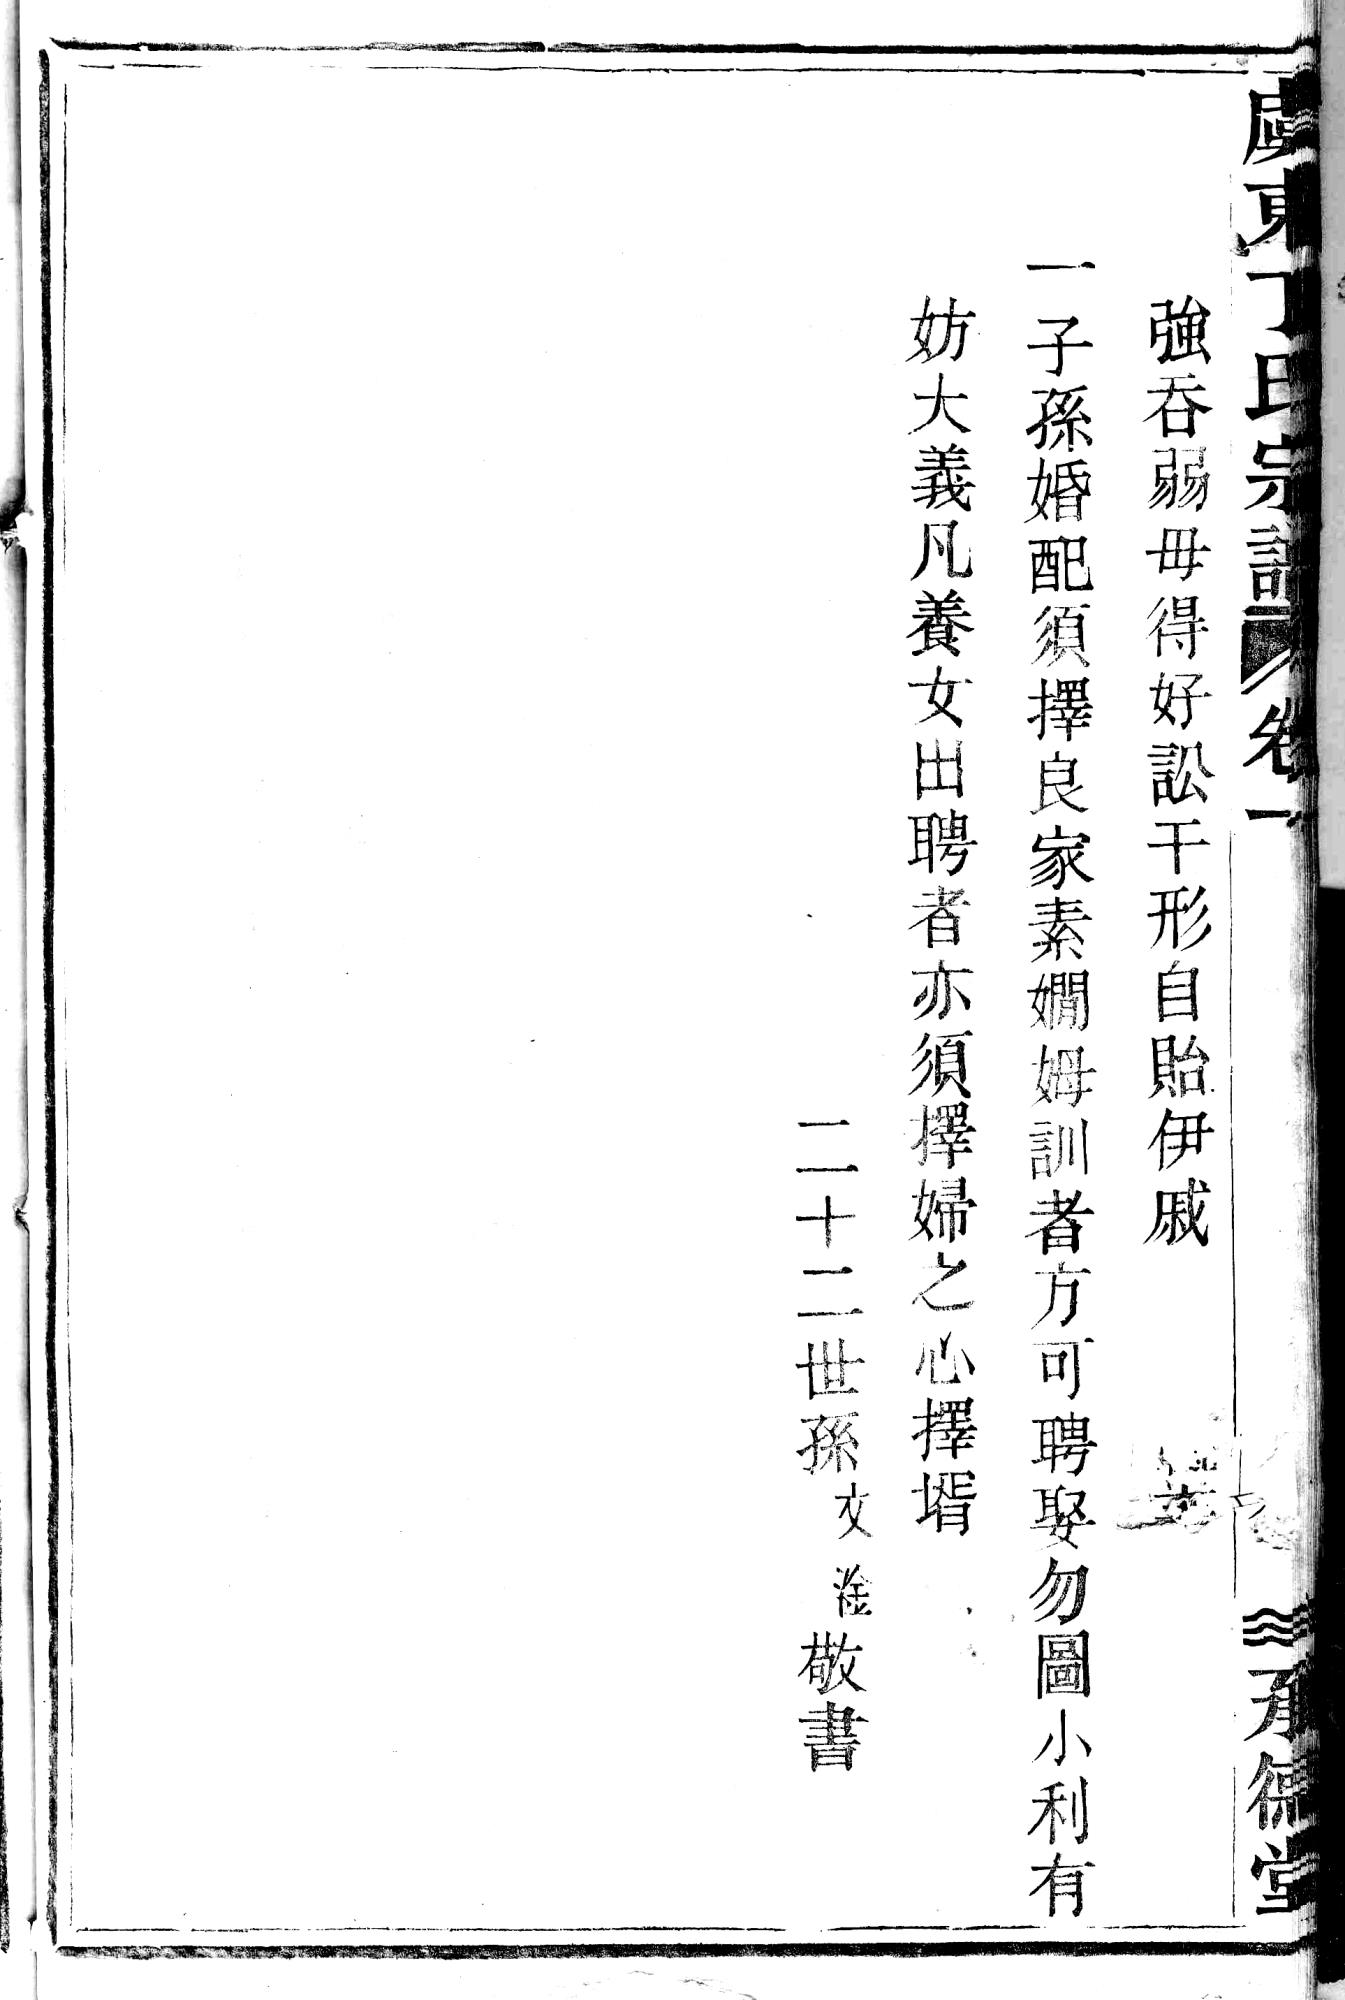 虞東丁氏宗譜 卷一 承德堂
強吞弱毋得好訟干形自貽伊戚
一子孫婚配須擇良家素嫺姆訓者方可聘娶勿圖小利有
妨大義凡養女出聘者亦須擇婦之心擇壻
二十二世孫文淦敬書